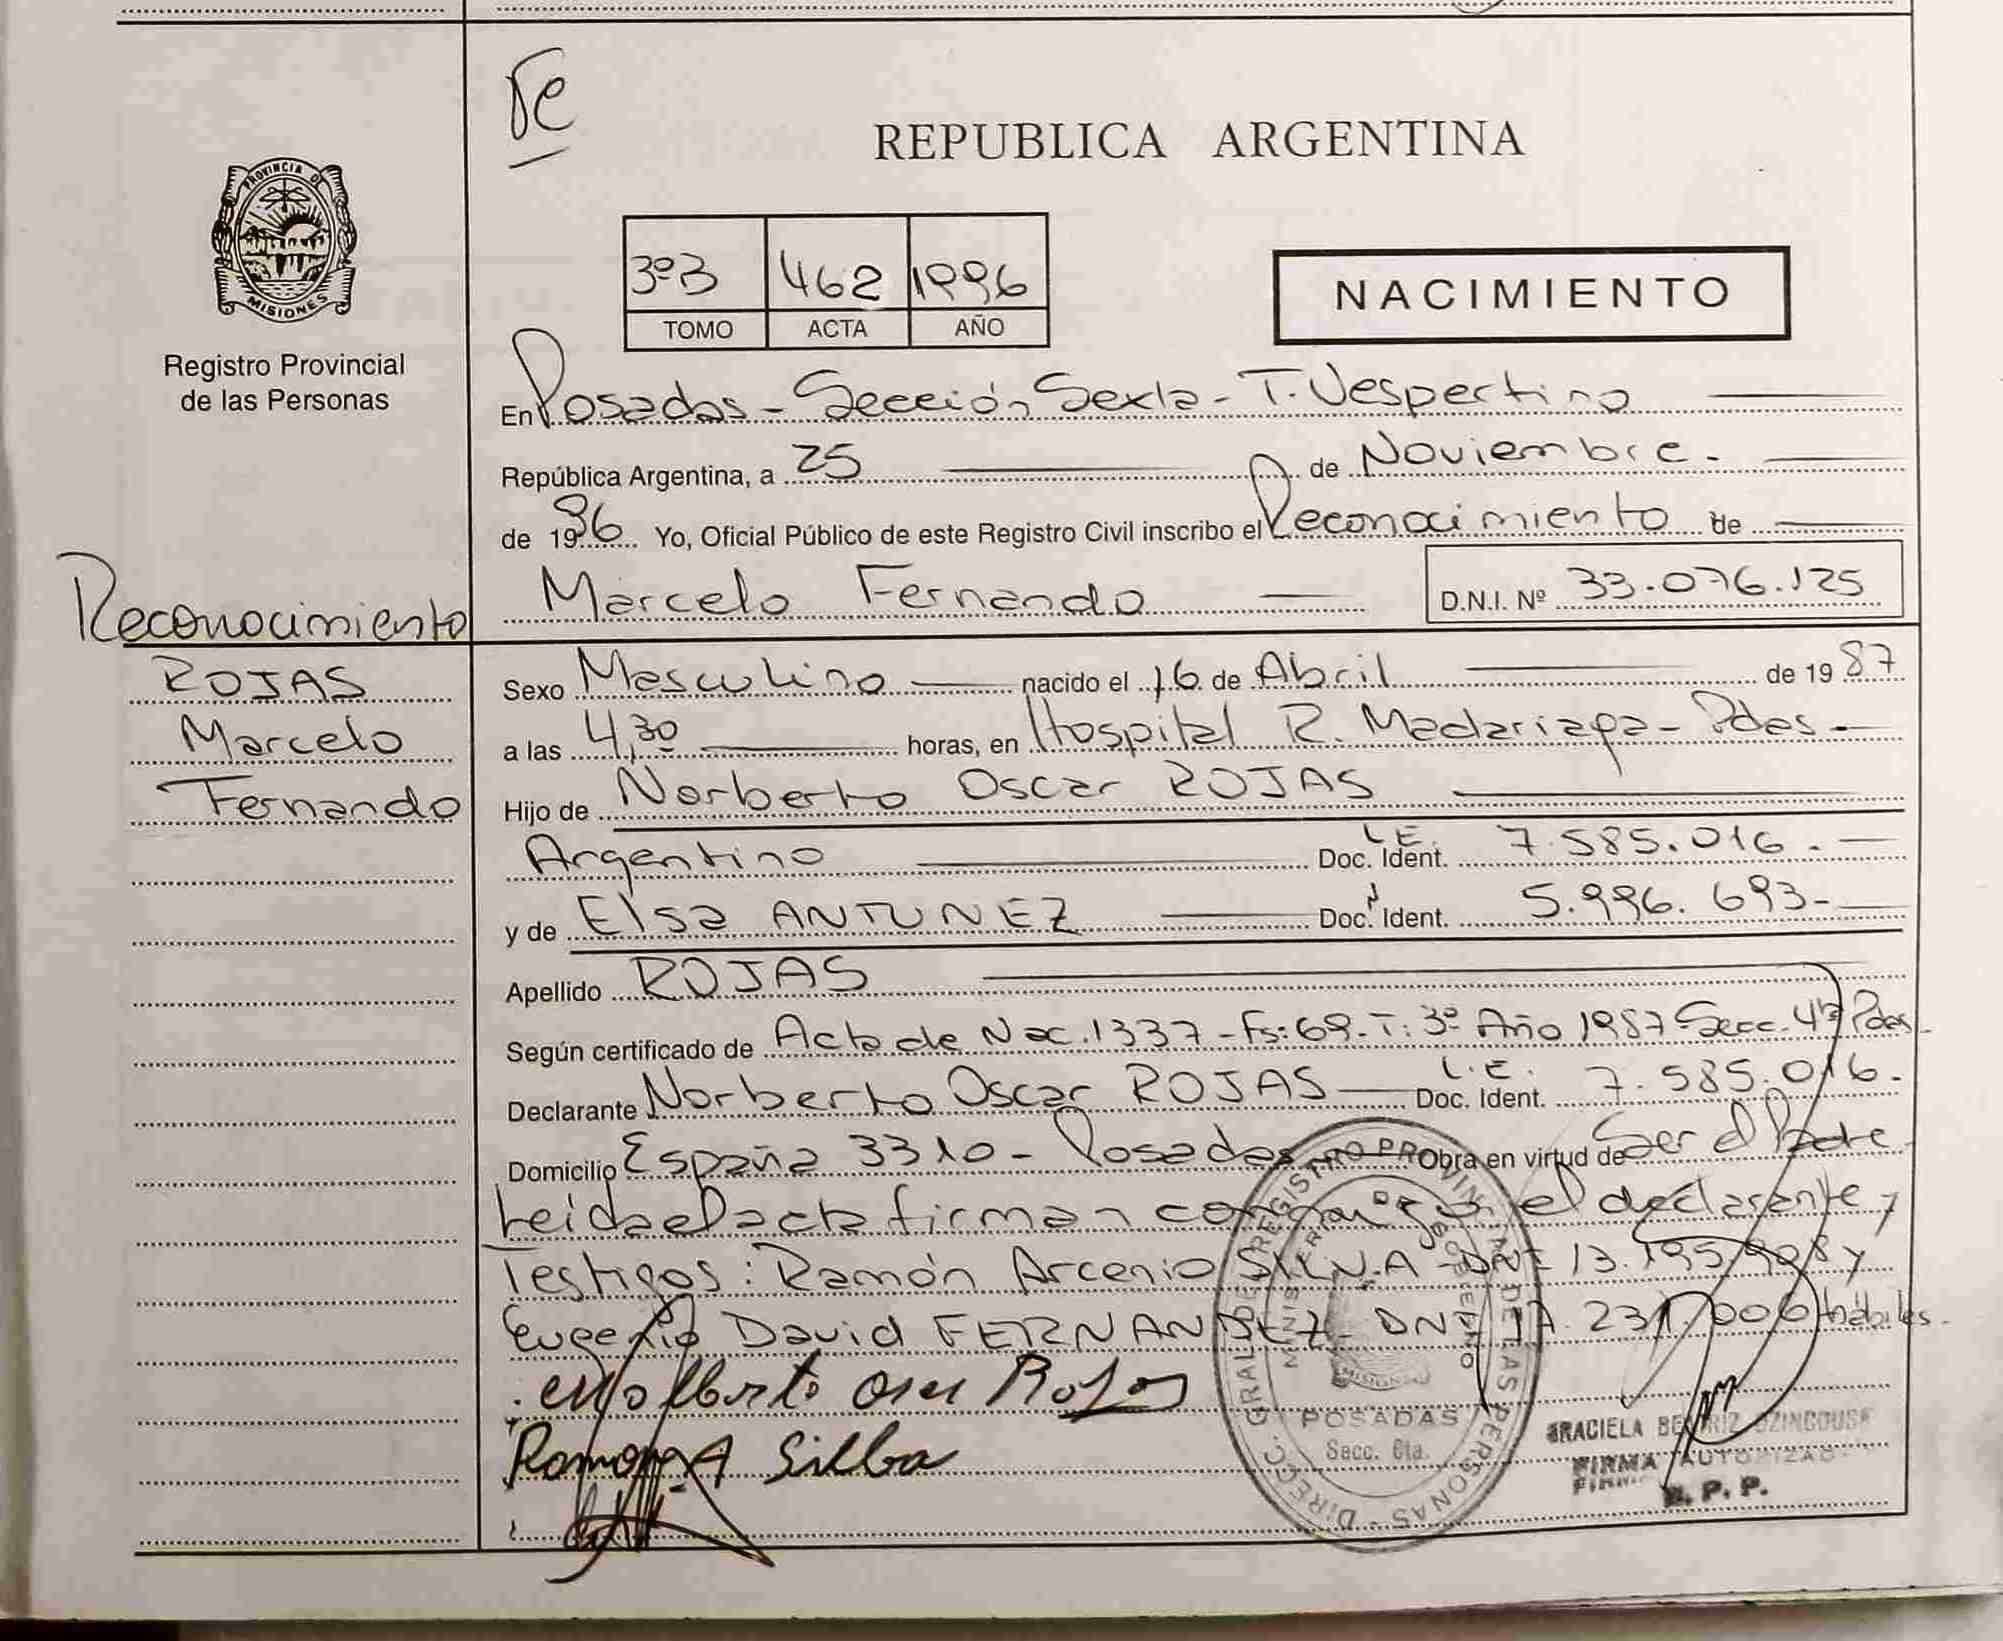 Te
REPUBLICA ARGENTINA
PROVINCIA DE
MISIONES
3º B 462 1996
TOMO ACTA AÑO
NACIMIENTO
Registro Provincial
de las Personas
En Posadas - Sección Sexta - T. Vespertino
República Argentina, a 25 de Noviembre.
de 1996 Yo, Oficial Público de este Registro Civil inscribo el Reconocimiento de
Marcelo Fernando D.N.I. Nº 33.076.125
Reconocimiento
ROJAS
Marcelo
Fernando
Sexo Masculino nacido el 16 de Abril de 1987
a las 4,30 horas, en Hospital R. Madariaga - Pdas -
Hijo de Norberto Oscar ROJAS
Argentino L.E. Doc. Ident. 7.585.016. -
y de Elsa ANTUNEZ Doc. Ident. 5.996.693 -
Apellido ROJAS
Según certificado de Acta de Nac. 1337 - Fs: 69 - T: 3º Año 1987 Secc. 4ta Pdas -
Declarante Norberto Oscar ROJAS L.E. Doc. Ident. 7.585.016.
Domicilio España 3310 - Posadas Obra en virtud de Ser el Padre
Leída el acta firman conmigo el declarante y
Testigos: Ramón Arcenio SILVA - DNI 13.195.998 y
Eugenio David FERNANDEZ - DNI 17.231.006 hábiles.
Rojas
Ramon A Silba
DIRECC. GRAL. DE REGISTRO PROVINCIAL DE LAS PERSONAS
MINISTERIO DE GOBIERNO
MISIONES
POSADAS
Secc. 6ta.
GRACIELA BEATRIZ
FIRMA AUTORIZADA
R. P. P.